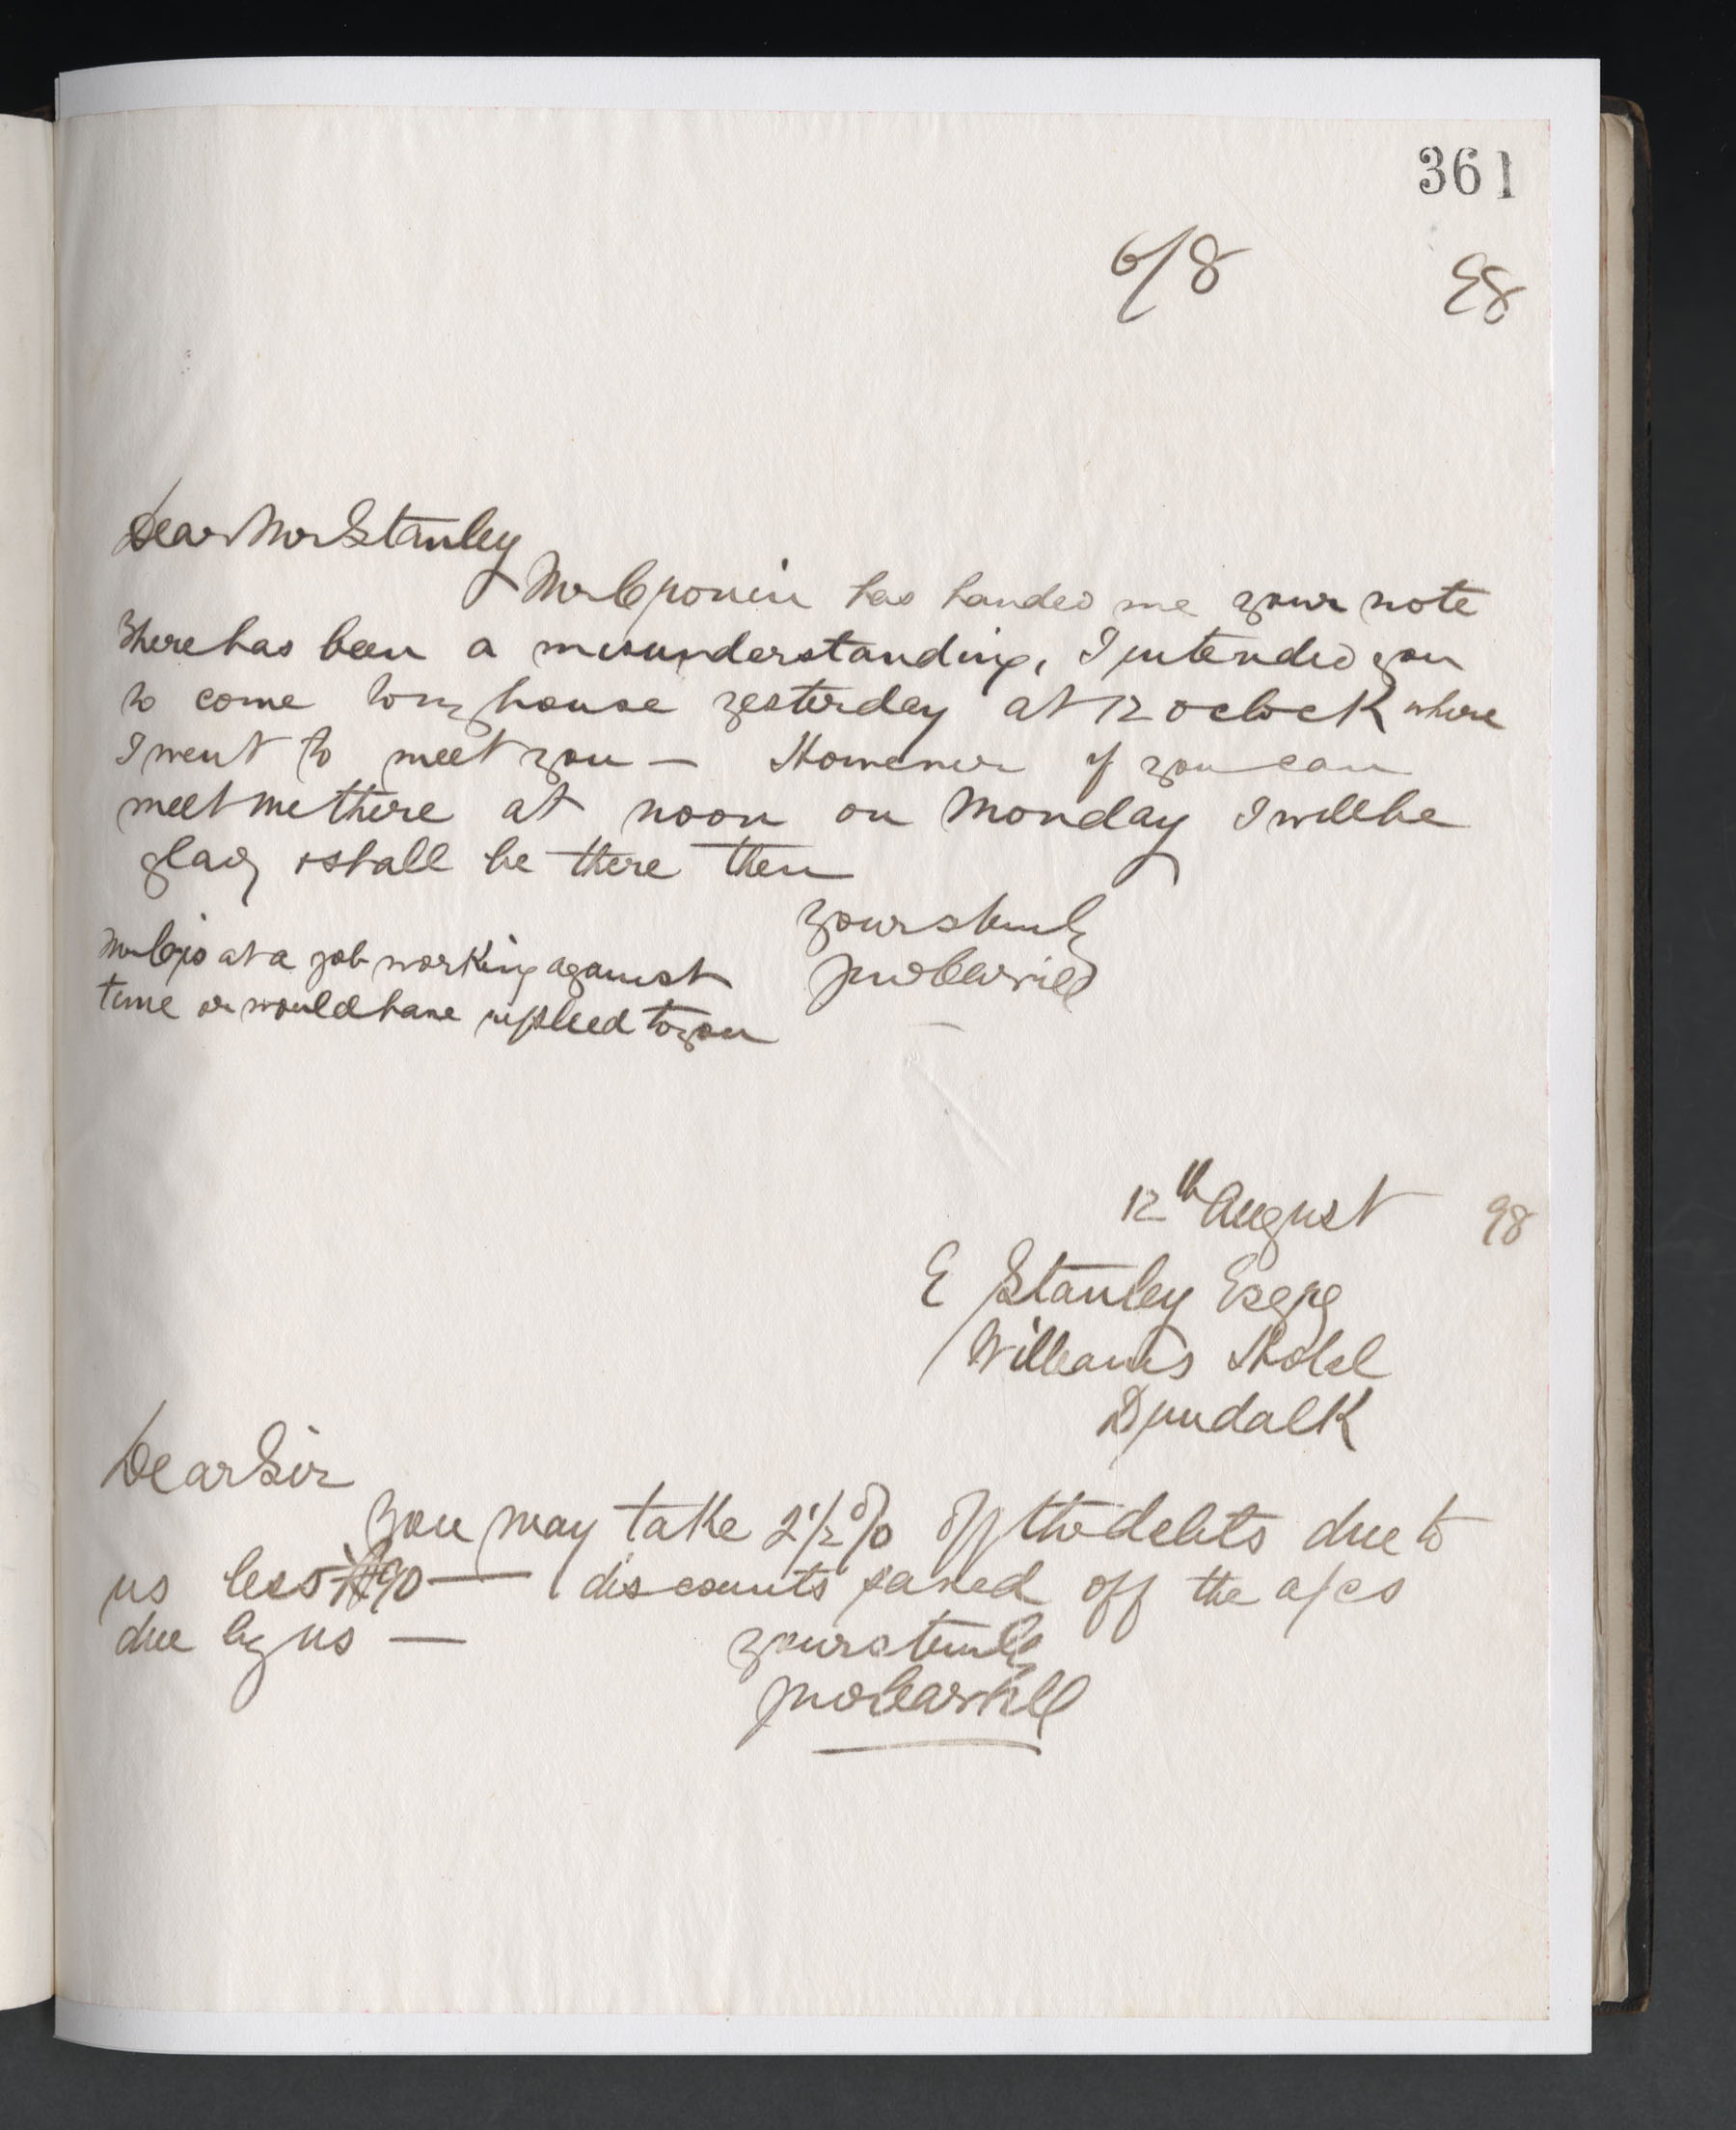 361
6/8 98
Dear Mr Stanley
Mr Cronin has handed me your note
There has been a misunderstanding, I intended you
to come to my house yesterday at 12 oclock where
I went to meet you — However if you can
meet me there at noon on Monday I will be
glad, & shall be there then
yours truly
Jno Carroll
Mr C is at a job working against
time or would have replied to you
12th August 98
E Stanley Esqre
Williams Hotel
Dundalk
Dear Sir
You may take 2 1/2 % off the debts due to
us less 90 — discounts saved off the a/cs
due by us —
yours truly
Jno Carroll